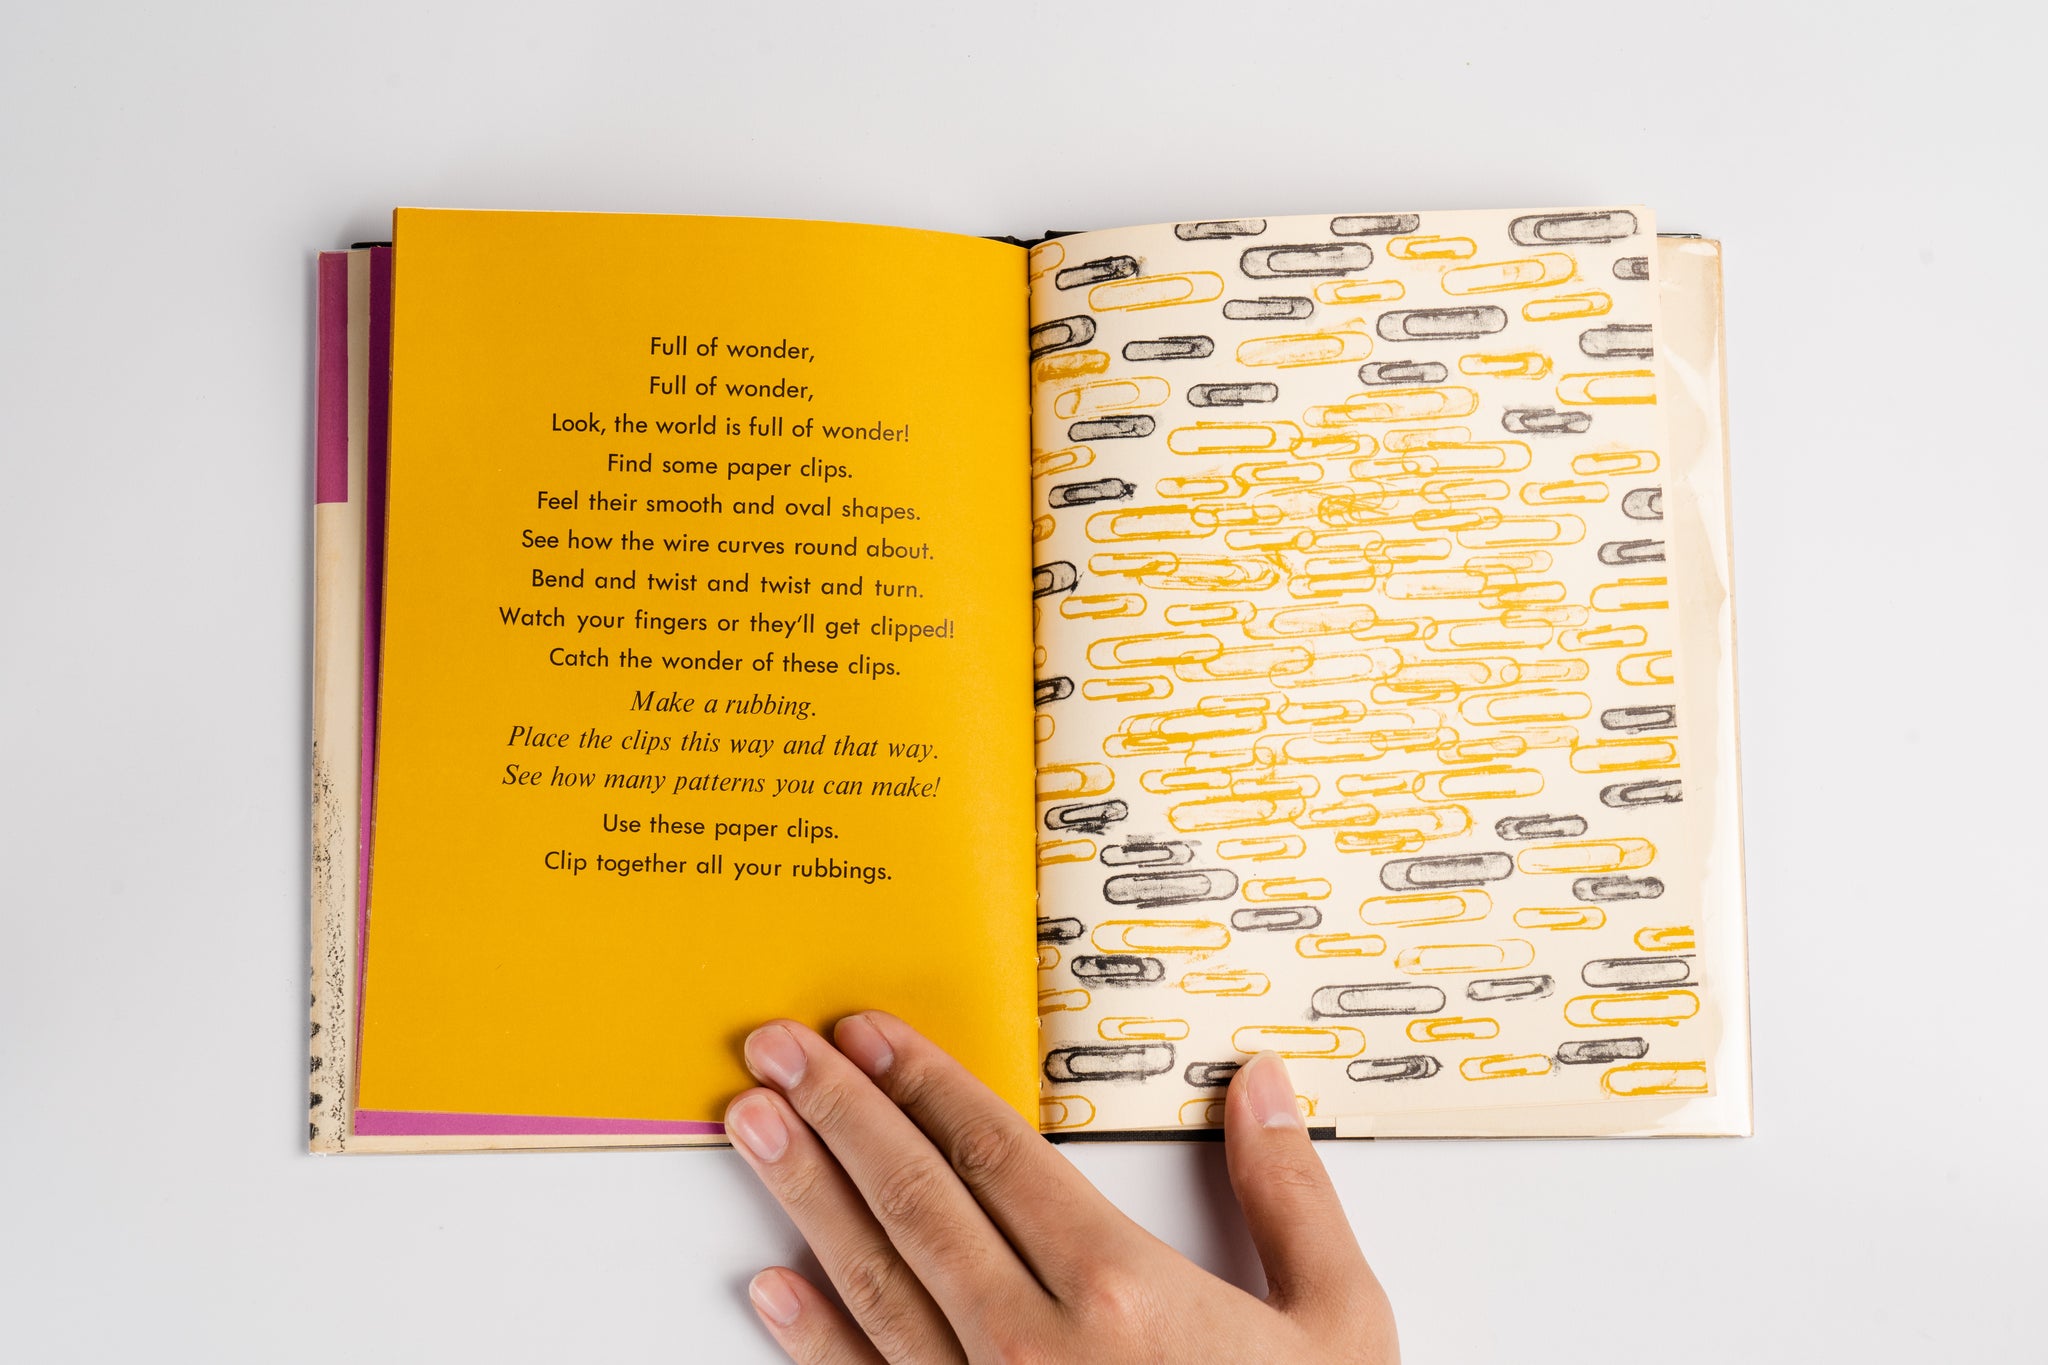 Full of wonder,
Full of wonder,
Look, the world is full of wonder!
Find some paper clips.
Feel their smooth and oval shapes.
See how the wire curves round about.
Bend and twist and twist and turn.
Watch your fingers or they'll get clipped!
Catch the wonder of these clips.
Make a rubbing.
Place the clips this way and that way.
See how many patterns you can make!
Use these paper clips.
Clip together all your rubbings.